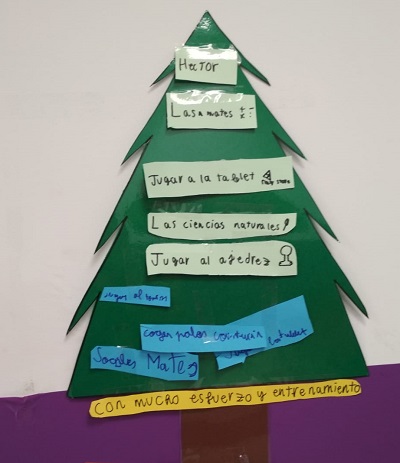 HECTOR
Las mates + - x :
Jugar a la tablet
Las ciencias naturales
Jugar al ajedrez
cogen palos
Sociales Mates
con mucho esfuerzo y entrenamiento